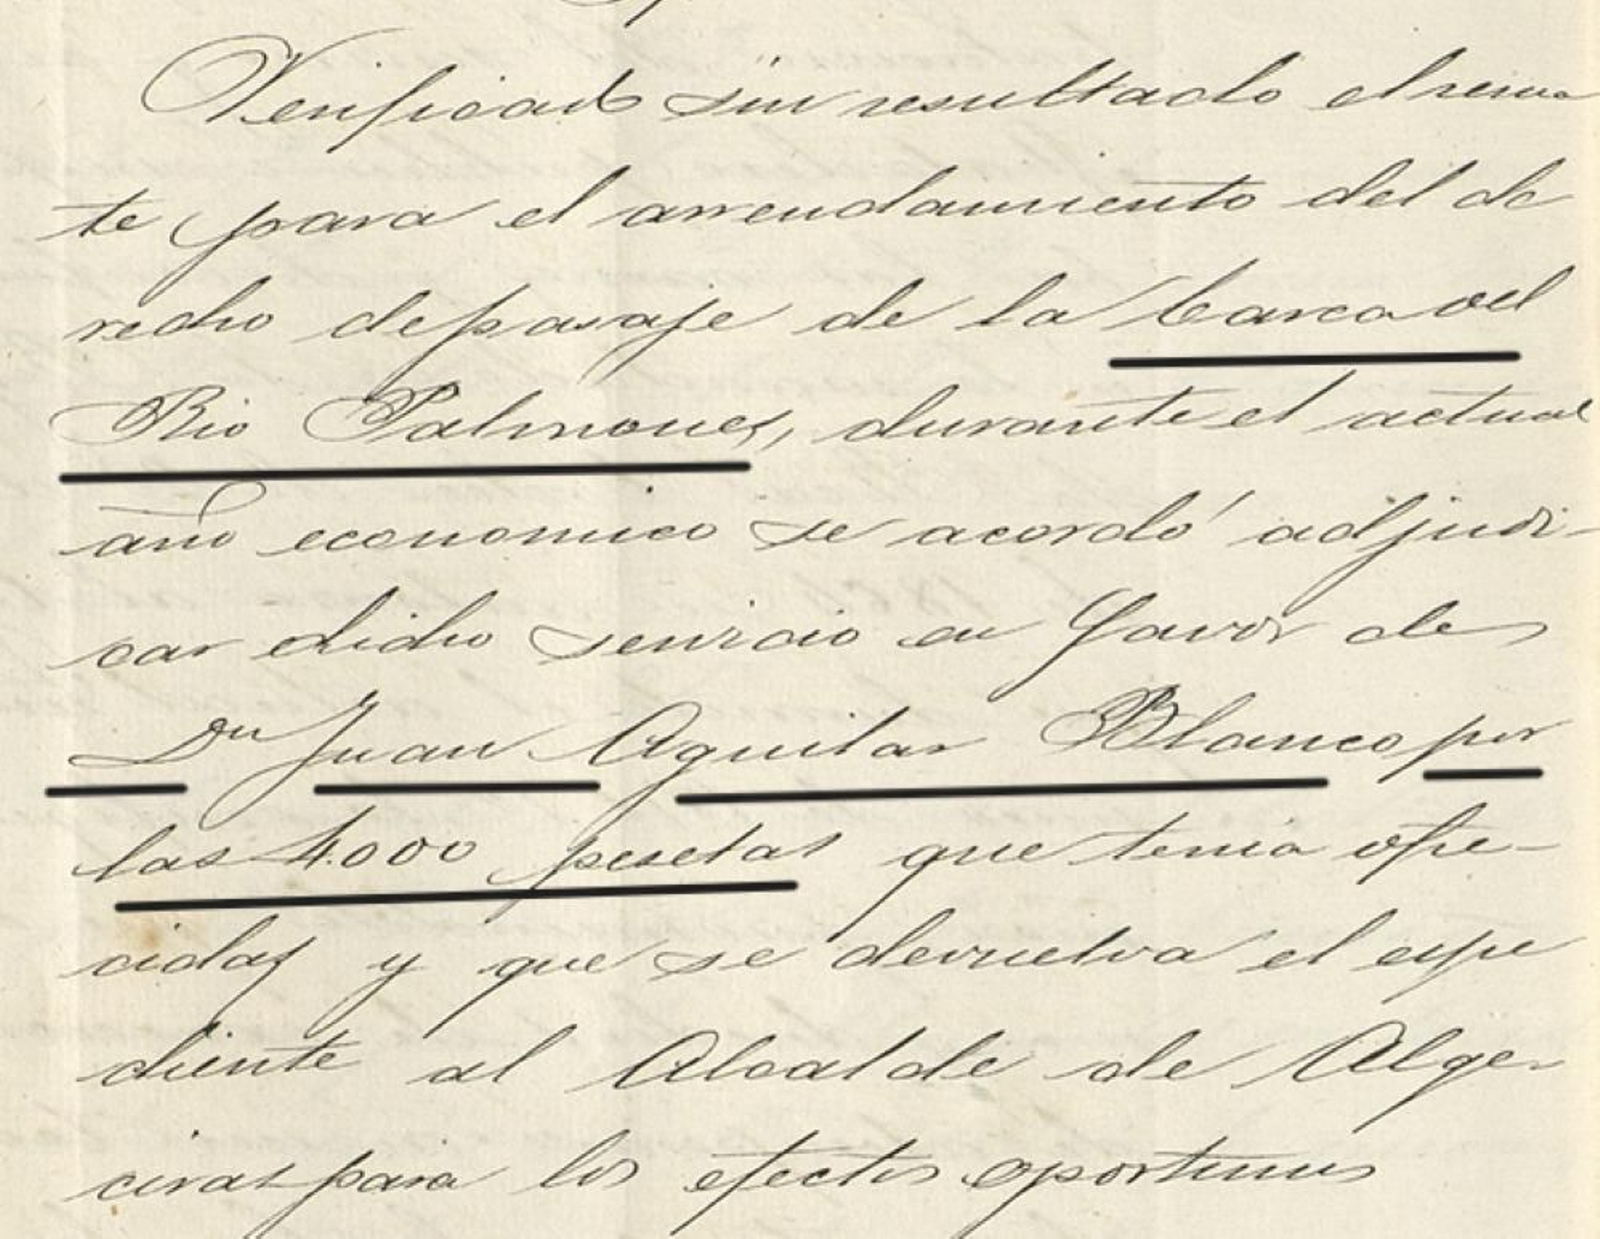 Verificado sin resultado el rema
te para el arrendamiento del de
recho de pasaje de la barca del
Rio Palmones, durante el actual
año economico se acordó adjudi-
car dicho servicio en favor de
Dn Juan Aguilar Blanco por
las 4.000 pesetas que tenia ofre-
cidas y que se devuelva el espe
diente al Alcalde de Alge-
ciras para los efectos oportunos